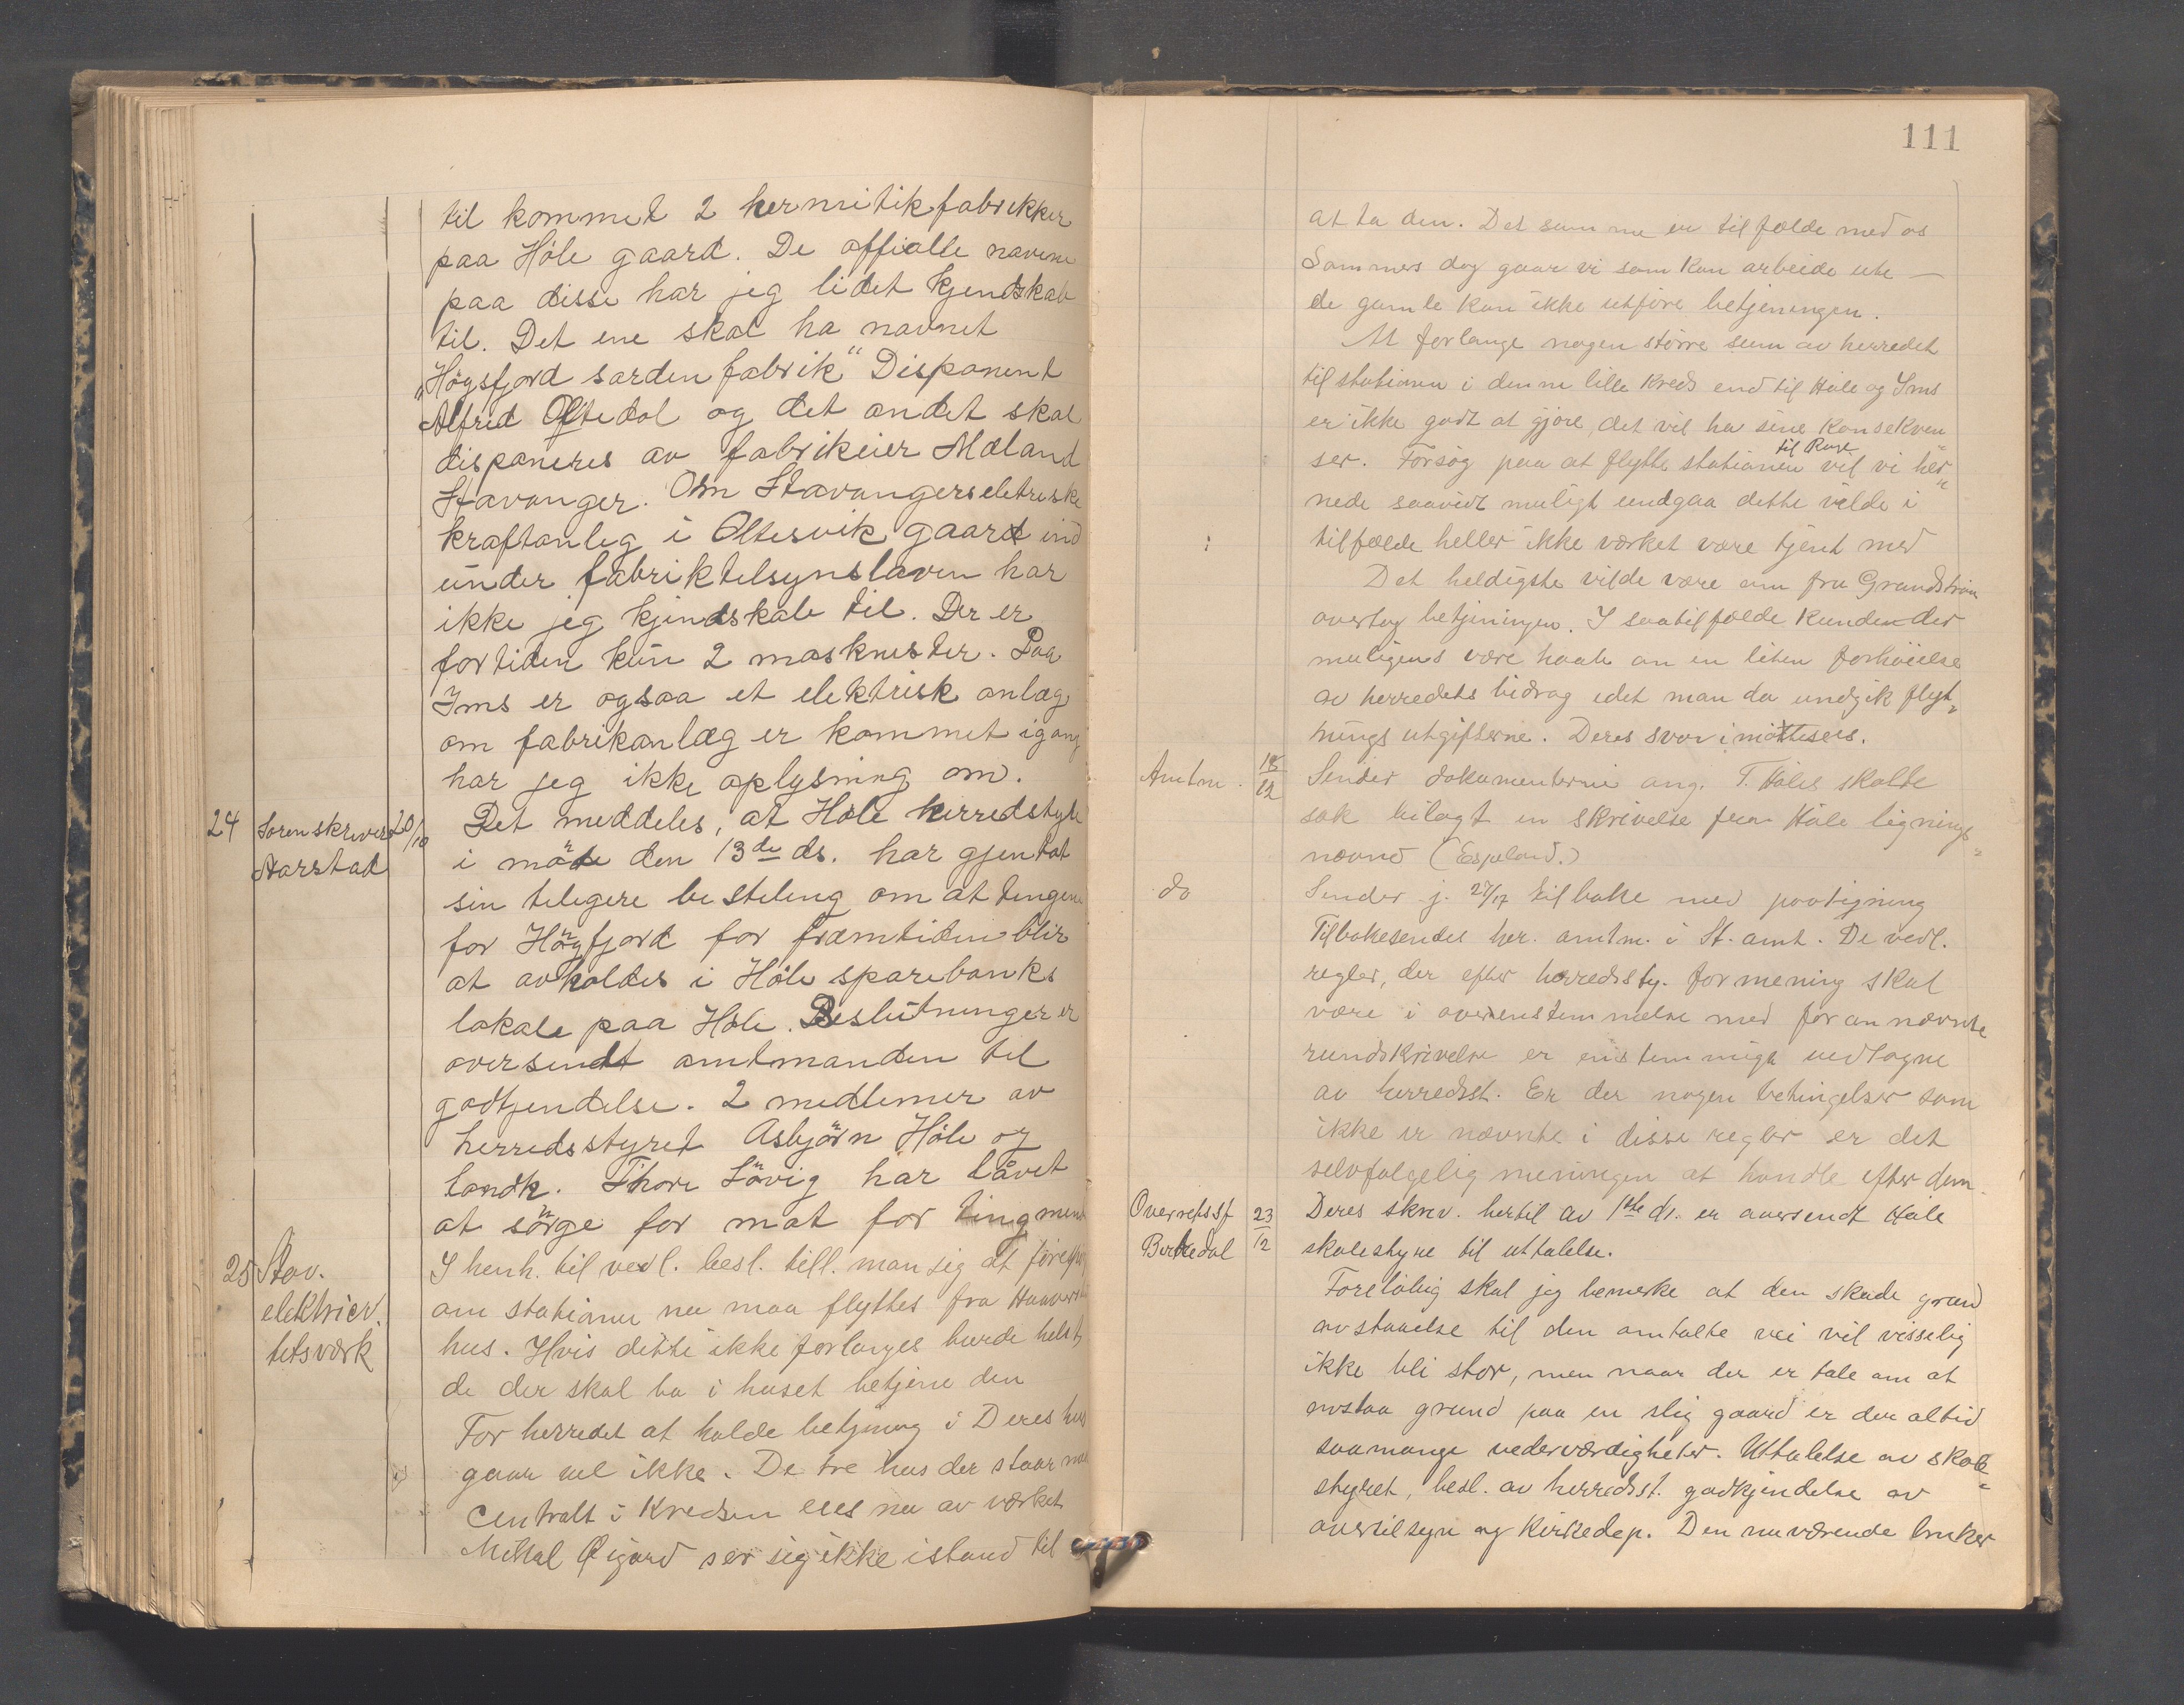 til kommet 2 hermitikfabrikker
paa Höle gaard. De offialle navene
paa disse har jeg lidet kjendskab
til. Det ene skal ha navnet
„Högsfjord sardenfabrik“ Disponent
Alfred Oftedal og det andet skal
disponeres av fabrikeier Mæland
Stavanger. Om Stavangers eletriske
kraftanleg i Oltesvik gaard ind
under fabriktelsynslaven har
ikke jeg kjendskab til. Der er
fortiden kun 2 masknester. Paa
Ims er ogsaa et elektrisk anlæg
om fabrikanlæg er kommet igang
har jeg ikke oplysning om.
24 Sorenskriver 20/10 Det meddeles, at Höle herredstyre
Harstad i möte den 13de ds. har gjentat
sin telegere besteleng om at tingene
for Högfjord for fremtiden blir
at avholdes i Höle sparebanks
lokale paa Höle. Beslutninger er
oversendt amtmanden til
godkjendelse. 2 medlemer av
herredsstyret Asbjörn Höle og
landh. Thore Lövig har låvet
at sörge for mat for tingmend
25 Stav. I henh. til vedl. besl. till. man sig at
elektrici- om stationen nu maa flyttes fra
tetsværk hus. Hvis dette ikke forlanges burde helst
de der skal bo i huset betjene den
For herredet at holde betjening i Deres hus
gaar vel ikke. De tre hus der staar
centralt i Kredsen eies nu av værket
Mikal Öigard ser sig ikke istand til
111
at ta den. Det samme er tilfælde med os
Sommers dag gaar vi som kan arbeide ute —
de gamle kan ikke utföre betjeningen.
At forlange nogen större sum av herredet
til stationen i denne lille Kreds end til Höle og Ims
er ikke godt at gjöre, det vil ha sine konsekven-
til
ser. Forsög paa at flytte stationen vil vi her-
nede saavidt muligt undgaa dette vilde i
tilfælde heller ikke værket være tjent med
Det heldigste vilde være om fru Grundström
overtog betjeningen. I saa tilfælde kunde der
muligens være haab om en liten forhöielse
av herredets bidrag idet man da undgik flyt-
nings utgifterne. Deres svar imötesees.
Amtm. 18/12 Sender dokumenterne ang. T. Höles skatte
sak bilagt en skrivelse fra Höle lignings-
nævnd (Espeland.)
do Sender j. 27/17 tilbake med paategning
Tilbakesendes her. amtm. i St. amt. De vedl.
regler, der efter herredssty. formening skal
være i overenstemmelse med forannævnte
rundskrivelse er enstemmigt vedtagne
av herredsst. Er der nogen betingelser som
ikke er nævnte i disse regler er det
selvfølgelig meningen at handle efter dem.
Overretssf 23/12 Deres skriv. hertil av 1ste ds. er oversendt Höle
Birkedal skolestyre til uttalelse.
Forelöbig skal jeg bemerke at den skade grund
avstaaelse til den omtalte vei vil visselig
ikke bli stor, men naar der er tale om at
avstaa grund paa en slig gaard er der altid
saamange vederværdigheter. Uttalelse av skole-
styret, besl. av herredsst. godkjendelse av
overtilsyn og Kirkedep. Den nuværende bruker